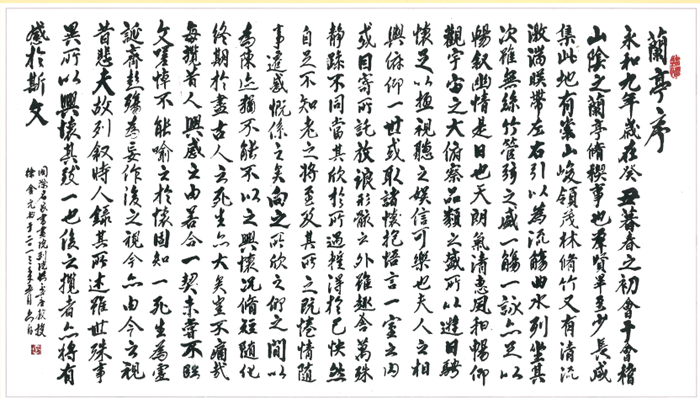 蘭亭序
永和九年歲在癸丑暮春之初會于會稽
山陰之蘭亭脩稧事也羣賢畢至少長咸
集此地有崇山峻領茂林脩竹又有清流
激湍暎帶左右引以為流觴曲水列坐其
次雖無絲竹管弦之盛一觴一詠亦足以
暢叙幽情是日也天朗氣清惠風和暢仰
觀宇宙之大俯察品類之盛所以遊目騁
懷足以極視聽之娛信可樂也夫人之相
與俯仰一世或取諸懷抱悟言一室之內
或因寄所託放浪形骸之外雖趣舍萬殊
靜躁不同當其欣於所遇暫得於己快然
自足不知老之將至及其所之既惓情隨
事遷感慨係之矣向之所欣俛仰之間以
為陳迹猶不能不以之興懷況脩短隨化
終期於盡古人云死生亦大矣豈不痛哉
每攬昔人興感之由若合一契未嘗不臨
文嗟悼不能喻之於懷固知一死生為虛
誕齊彭殤為妄作後之視今亦由今之視
昔悲夫故列叙時人錄其所述雖世殊事
異所以興懷其致一也後之攬者亦將有
感於斯文
國際名家書畫院副院長客座教授
徐金元書於二〇一三年